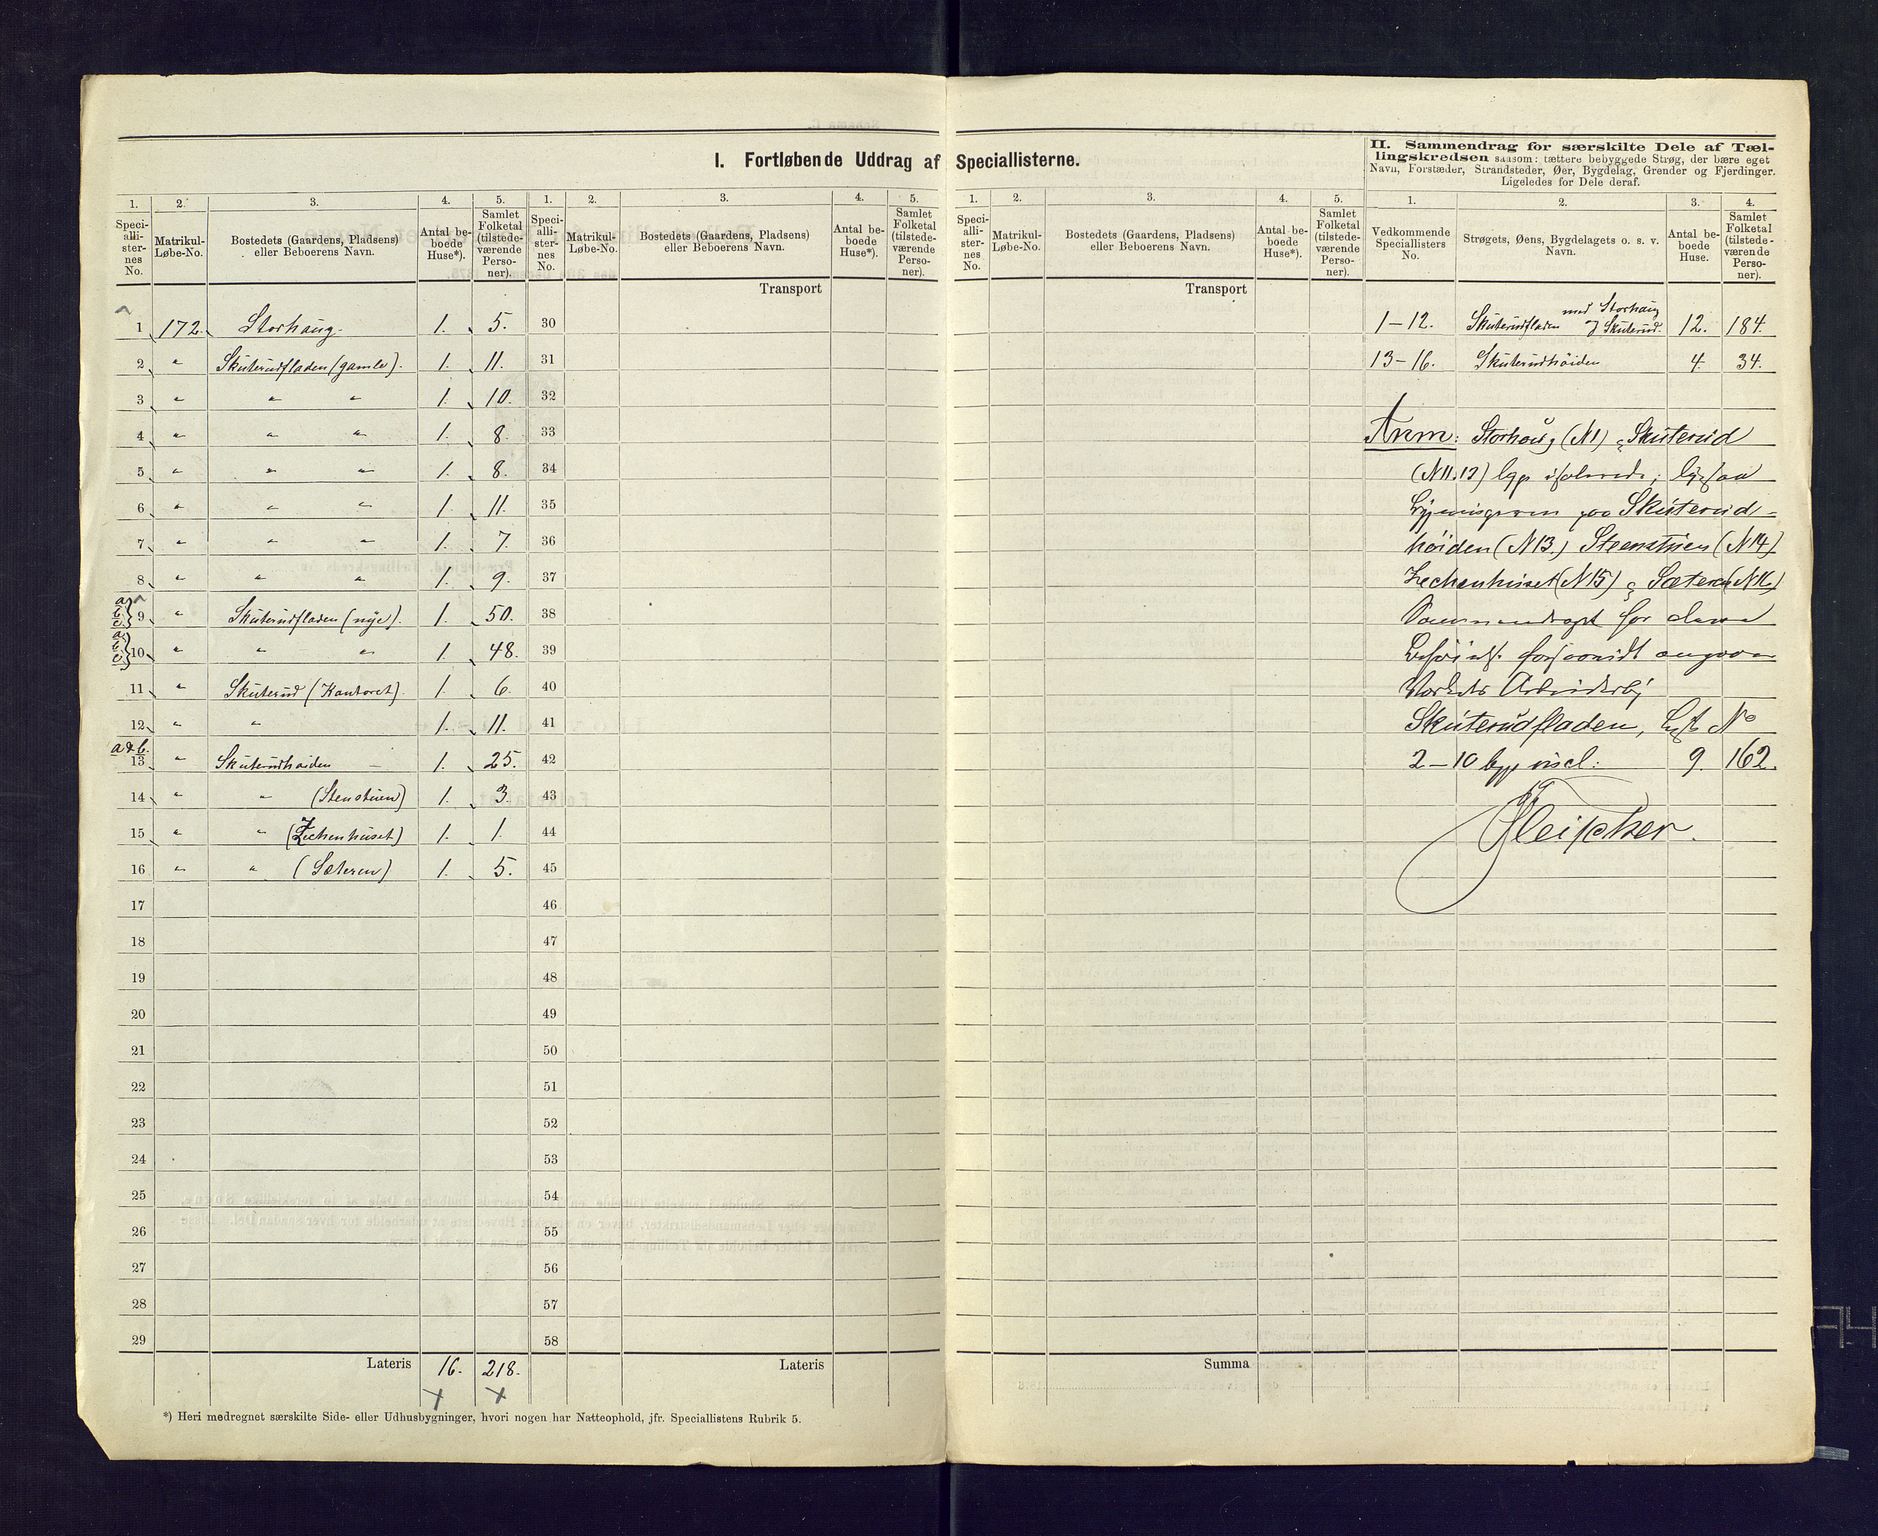 I. Fortløbende Uddrag af Speciallisterne.
1. 2. 3. 4. 5.
Speciallisternes No. Matrikul-Løbe-No. Bostedets (Gaardens, Pladsens) eller Beboerens Navn. Antal beboede Huse*). Samlet Folketal (tilstedeværende Personer).
1 172. Storhaug. 1. 5.
2 " Skuterudfladen (gamle). 1. 11.
3 " " " 1. 10.
4 " " " 1. 8.
5 " " " 1. 8.
6 " " " 1. 11.
7 " " " 1. 7.
8 " " " 1. 9.
a. b. c. } 9 " Skuterudfladen (nye). 1. 50.
a. b. c. } 10 " " " 1. 48.
11 " Skuterud (Kontoret). 1. 6.
12 " " 1. 11.
a & b. 13 " Skuterudhøiden – 1. 25.
14 " " (Stenstuen) 1. 3.
15 " " (Zechenhuset) 1. 1.
16 " " (Sæteren) 1. 5.
17
18
19
20
21
22
23
24
25
26
27
28
29
Lateris 16. 218.
*) Heri medregnet særskilte Side- eller Udhusbygninger, hvori nogen har Natteophold, jfr. Speciallistens Rubrik 5.
1. 2. 3. 4. 5.
Speciallisternes No. Matrikul-Løbe-No. Bostedets (Gaardens, Pladsens) eller Beboerens Navn. Antal beboede Huse*). Samlet Folketal (tilstedeværende Personer).
Transport
30
31
32
33
34
35
36
37
38
39
40
41
42
43
44
45
46
47
48
49
50
51
52
53
54
55
56
57
58
Lateris
1. 2. 3. 4. 5.
Speciallisternes No. Matrikul-Løbe-No. Bostedets (Gaardens, Pladsens) eller Beboerens Navn. Antal beboede Huse*). Samlet Folketal (tilstedeværende Personer).
Transport
Summa
II. Sammendrag for særskilte Dele af Tællingskredsen saasom: tættere bebyggede Strøg, der bære eget
Navn, Forstæder, Strandsteder, Øer, Bygdelag, Grender og Fjerdinger.
Ligeledes for Dele deraf.
1. 2. 3. 4.
Vedkommende Speciallisters No. Strøgets, Øens, Bygdelagets o. s. v. Navn. Antal beboede Huse. Samlet Folketal (tilstedeværende Personer).
1–12. Skuterudfladen med Storhaug og Skuterud. 12. 184.
13–16. Skuterudhøiden 4. 34.
Anm: Storhaug (N1) Skuterud
(N11.12) ligge isolerede; ligesaa
Bygningerne paa Skuterud-
høiden (N13.) Steenstuen (N14)
Zechenhuset (N15) Sæteren (N16)
Sammendraget for
Værkets Arbeiderby
Skuterudfladen, No
2–10 9. 162.